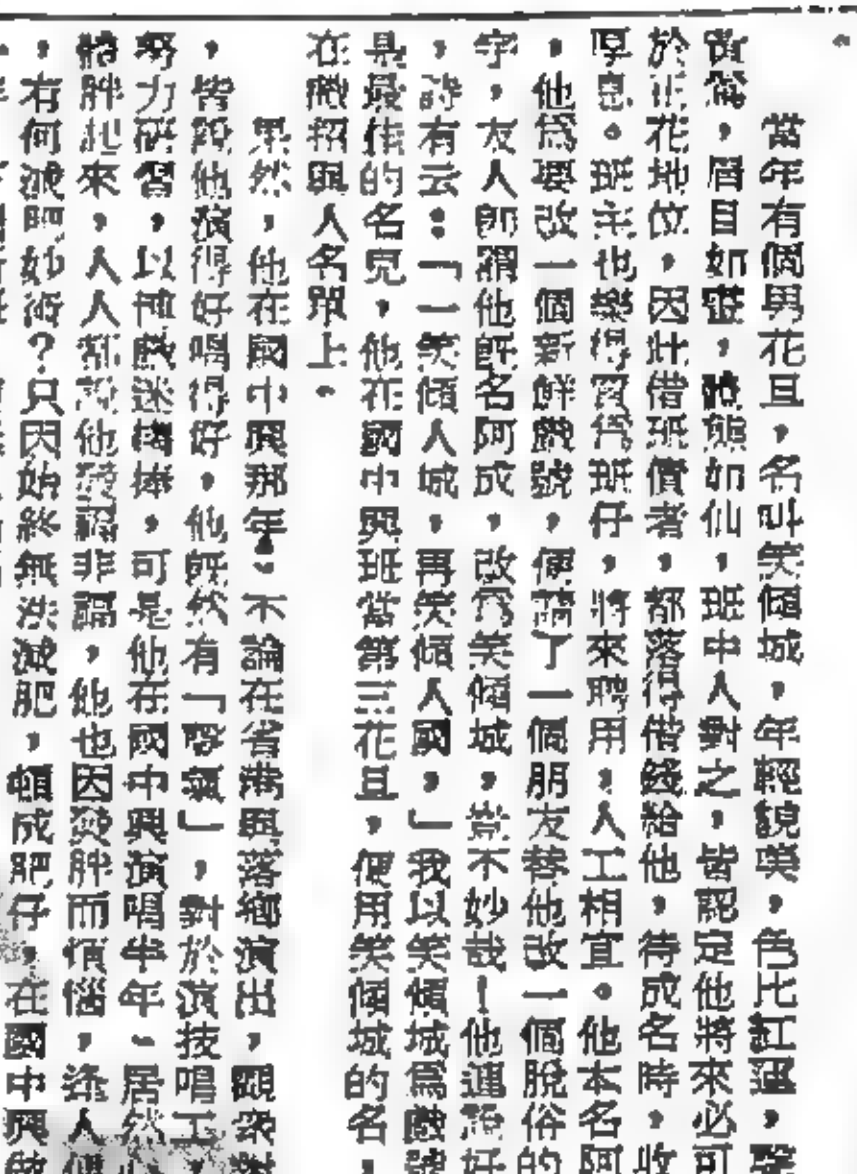 當年有個男花旦，名叫笑傾城，年輕貌美，色比紅蓮，聲
黃鶯，眉目如畫，體態如仙，班中人對之，皆認定他將來必可
於正花地位，因此借班債者，都落得借錢給他，待成名時，收
厚息。班主也樂得買為班仔，將來聘用，人工相宜。他本名阿
，他為要改一個新鮮戲號，便請了一個朋友替他改一個脫俗的
字，友人即謂他既名阿成，改為笑傾城，豈不妙哉！他連說好
，詩有云：「一笑傾人城，再笑傾人國，」我以笑傾城為戲號
是最佳的名兒，他在國中興班當第三花旦，便用笑傾城的名，
在戲招與人名單上。
果然，他在國中興那年，不論在省港與落鄉演出，觀衆對
，皆說他演得好唱得好，他既然有「聲氣」，對於演技唱工，
努力研習，以博戲迷捧，可是他在國中興演唱半年、居然心
體胖起來，人人都說他發福非福，他也因發胖而煩惱，逢人便
，有何減肥妙術？只因始終無法減肥，頓成肥仔，在國中興做